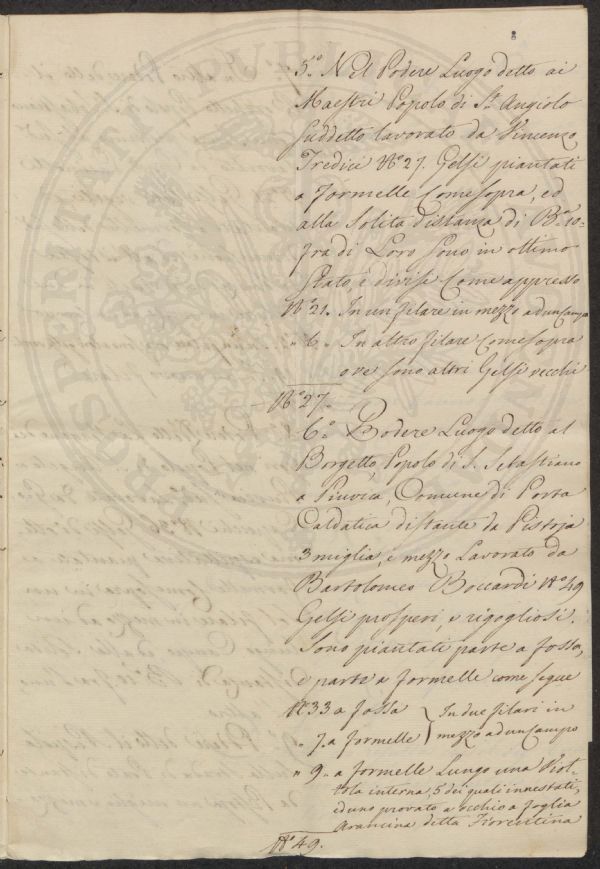 5.° Nel Podere Luogo detto ai
Maestri Popolo di S.t Angiolo
Suddetto lavorato da Vincenzo
Tredici N.° 27. Gelsi piantati
a formelle Come sopra, ed
alla Solita distanza di B.a 10-
fra di Loro sono in ottimo
Stato, e divisi Come appresso
N.° 21. In un filare in mezzo ad un Campo
" 6. In altro filare Come sopra
ove sono altri Gelsi vecchi
N.° 27.
6.° Podere Luogo detto al
Borgetto, Popolo di S. Sebastiano
a Piuvica, Comune di Porta
Caldatica distante da Pistoja
3 miglia, e mezzo Lavorato da
Bartolomeo Boccardi N.° 49
Gelsi prosperi, e rigogliosi.
Sono piantati parte a fossa,
e parte a formelle come segue
N.° 33 a fossa } In due filari in
" 7. a formelle } mezzo ad un Campo
" 9. a formelle Lungo una Viot-
tola interna, 5 dei quali innestati,
ed uno provato a occhio a foglia
Arancina detta Fiorentina
N.° 49.
PROSPERITAS PUBLI